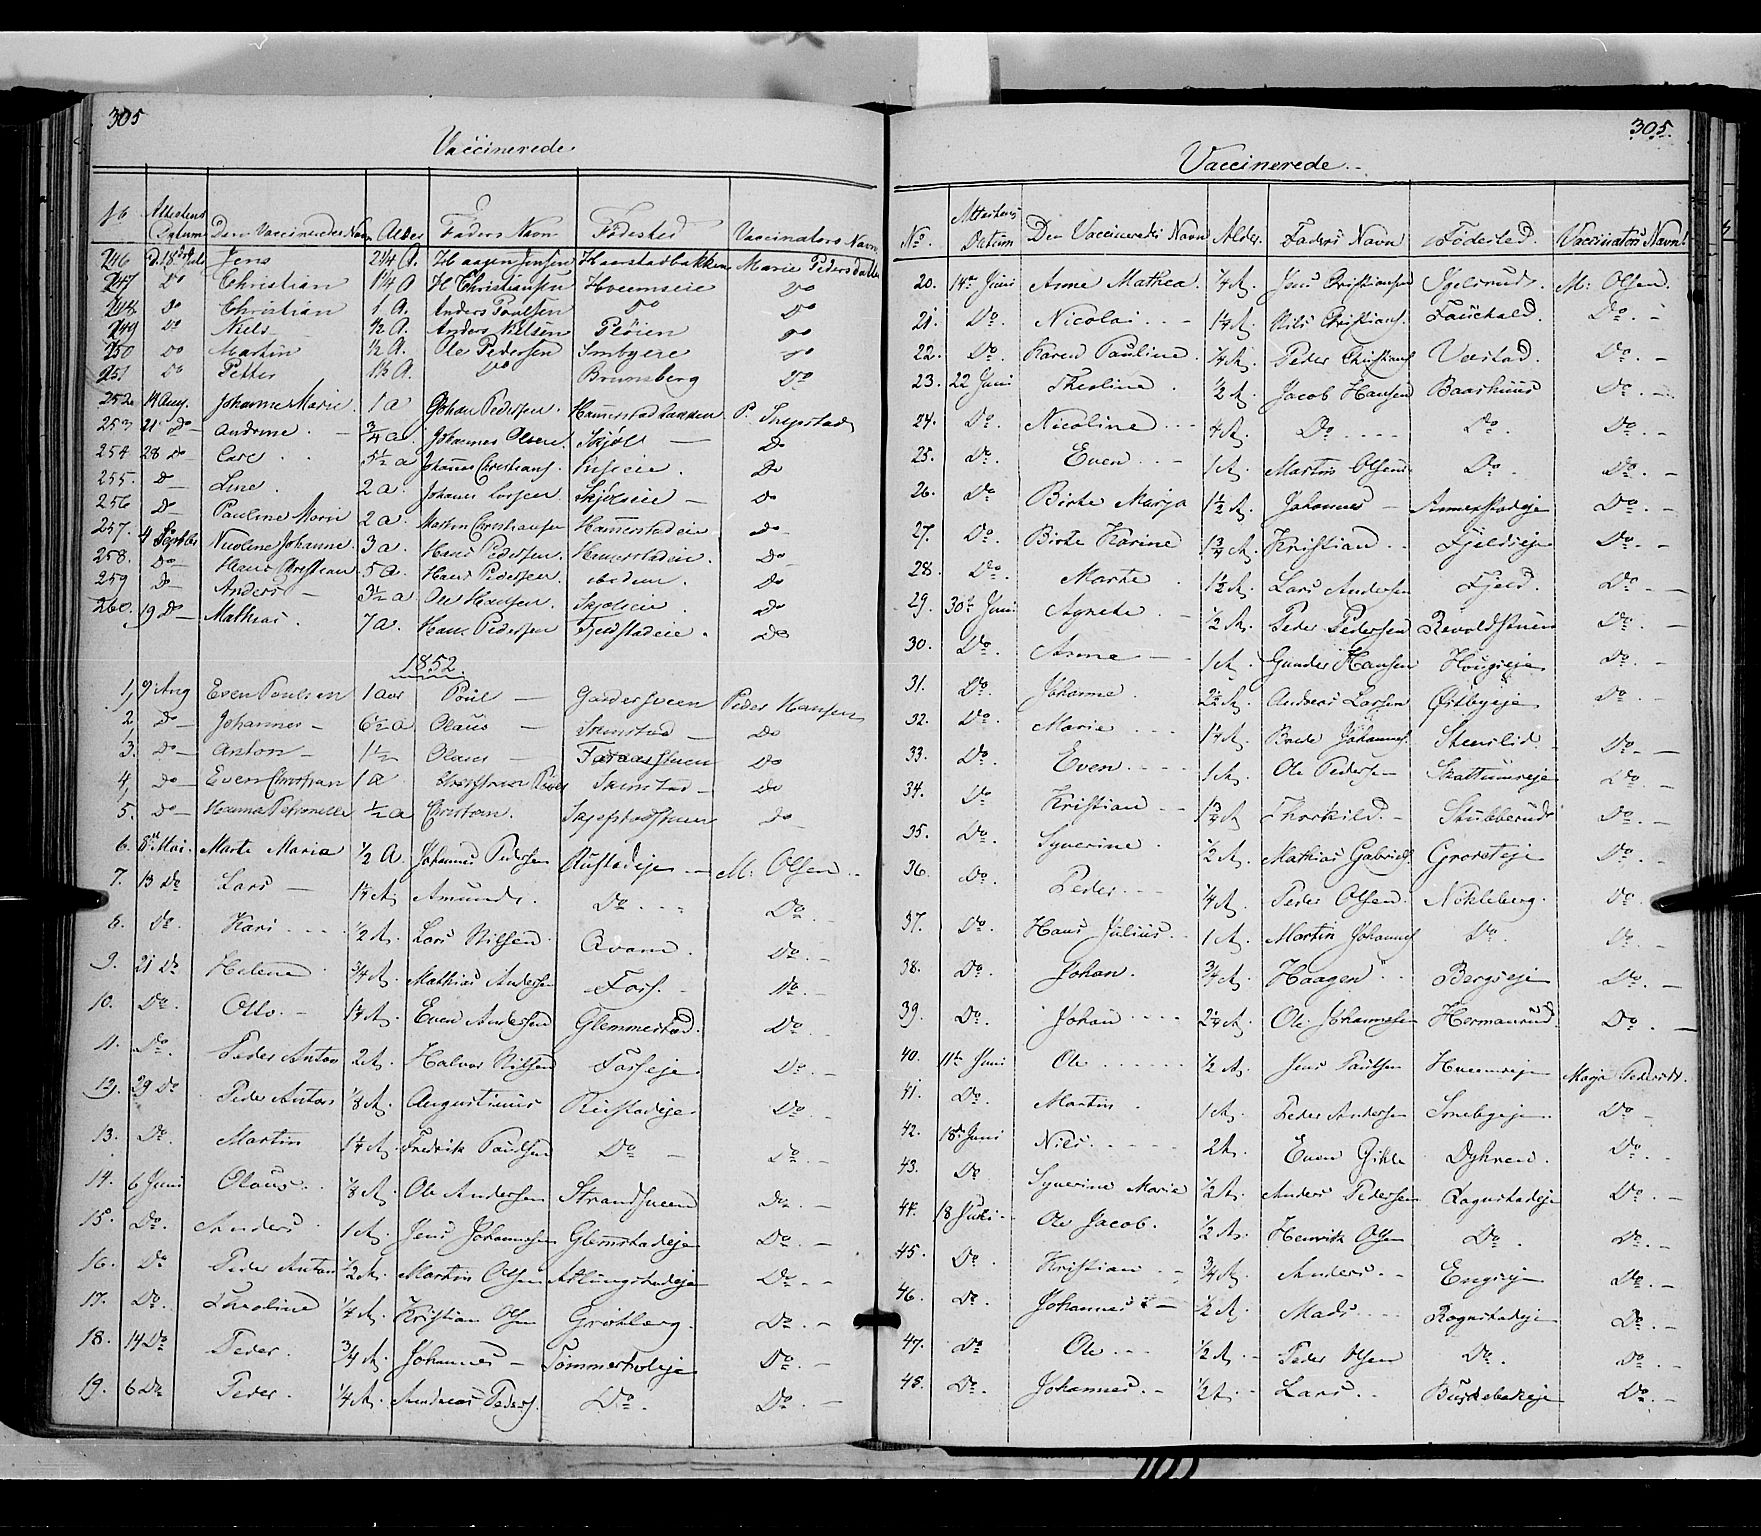 305
Vaccinerede
No Attestens Datum Den Vaccineredes Navn Alder Faders Navn Fødested Vaccinators Navn
246 D. 18de Juli Jens 2 1/4 A. Haagen Jensen Haarstadbakken Marie Pedersdatter
247 Do Christian 1 1/4 A H Christiansen Hveemseie Do
248 Do Christian 1 A. Anders Poulsen Do Do
249 Do Niels 1/2 A. Anders Nilsen Do
250 Do Martin 1/2 A. Ole Pedersen Smbyeie Do
251 Do Petter 1 1/2 A. Do Brunsberg Do
252 14 Aug. Johanne Marie 1 a Johan Pedersen P. Skjepstad
253 21 Do Andrine 3/4 a Johannes Olsen Skjøls Do
254 28 Do Carl 5 1/2 a Johannes Christians. Do
255. Do Line 2 a. Johannes Larsen Skjølseie Do
256 Do Pauline Marie 2 a. Martin Christiansen Hammerstadeie Do
257. 4 Septbr Nicoline Johanne 3 a. Hans Pedersen Hammerstadeie Do
258. Do Hans Christian 5 a. Hans Pedersen ibidem Do
259 Do Anders 3 1/2 a Ole Hansen. Skjølseie Do
260. 19 Do Mathias. 7 a. Hans Pedersen Fjeldstadeie. Do
1852
1, 9 Aug Even Poulsen 1 aar Poul Peder Hansen
2, Do Johannes 6 1/2 a Olaus Skinstad Do
3. Do Anton 1 1/2 Olaus Do
4, Do Even Christian 1 a Skinstad Do
5. Do Hanna Petronelle 1/2 a Christian. Skjepstadstuen Do
6. 8de Mai. Marte Maria 1/2 A. Johannes Pedersen Rustadeje M. Olsen
7. 13 Do Lars 1 1/4 A. Amund. Do Do
8. Do. Kari 1/2 A. Lars Nilsen Qvam. Do.
9. 21 Do Helene 3/4 A. Mathias Andersen Foss. Do.
10. Do. Otto. 1 1/4 A. Even Andersen Glemmestad. Do.
11. Do. Peder Anton 2 A. Halvor Nilsen Fosseje Do.
12. 29 Do Peder Anton 1/8 A. Augustinus Rustadeje Do.
13. Do. Martin 1 1/4 A. Fredrik Paulsen Do Do.
14. 6 Juni Olaus. 1/8 A. Ole Andersen Strandsveen Do.
15. Do. Anders 1 A. Jens Johannesen Glemstadeje Do.
16. Do Peder Anton 1/2 A. Martin Olsen Atlungstadeje Do.
17. Do. Karoline 1/4 A. Kristian Olsen Grøtberg. Do.
18. 14 Do Peder. 3/4 A. Johannes Tømmerholeje Do.
19. 6 Do Peder. 1/4 A. Andreas Peders. Do. Do.
305.
Vaccinerede.
No. Attestens Datum Den Vaccineredes Navn Alder. Faders Navn Fødested. Vaccinators Navn.
20. 14de Juni Anne Mathea. 1/4 A. Jens Christiansen Igelsrud. M. Olsen.
21. Do. Nicolai 1 1/4 A. Nils Christians. Fauchald. Do.
22. Do. Karen Pauline. 1/4 A. Peder Christians. Vestad. Do.
23. 22 Juni Thioline. 1/2 A. Jacob Hansen Baarhuus Do.
24. Do. Nicoline 4 A. Do. Do. Do.
25. Do. Even 1 A. Martin Olsen Do. Do.
26. Do Birte Marja 1 1/2 A. Johannes Ammerstadeje Do.
27. Do. Birte Karine 1 3/4 A. Kristian Fjeldseje Do.
28. Do. Marte. 1 1/2 A. Lars Andersen Fjeld. Do.
29. 30te Juni Agnete. 1/2 A. Peder Pedersen Revoldstuen Do.
30. Do. Anne 1 A. Gunder Hansen Hougseje Do.
31. Do. Johanne. 2 1/2 A. Andreas Larsen Østbyeje Do.
32. Do. Marie 1 1/4 A. Brede Johannes. Stenslid. Do.
33. Do. Even 1 A. Ole Pedersen Skattumseje Do.
34. Do. Kristian 1 3/4 A. Thorkild. Stubberud Do.
35. Do. Syverine. 1/2 A. Mathias Gabriels. Grøteje Do.
36. Do. Peder 1/4 A. Peder Olsen. Nøkleberg. Do
37. Do. Hans Julius. 1 A. Martin Johannes. Do. Do.
38. Do. Johan. 3/4 A. Haagen Bergseje Do.
39. Do. Johan 2 1/4 A. Ole Johannesen Hermanrud. Do.
40. 11te Juni Ole 1/2 A. Jens Paulsen Hveemseje Marja Pedersdt.
41. Do. Martin 1 A. Peder Andersen Smebyeje. Do
42. 18de Juni Nils 2 A. Even Gihle Dyhren. Do.
43. Do Syverine Marie 1/2 A. Anders Pedersen Rognstadeje Do.
44. 18 Juli Ole Jacob. 1/2 A. Henrik Olsen Do. Do.
45. Do. Kristian 3/4 A. Anders Engseje Do.
46. Do. Johannes 1/2 A. Mads Rognstadeje Do.
47. Do Ole 1/2 A. Peder Olsen Do. Do.
48. Do. Johannes. 1/2 A. Lars. Do.